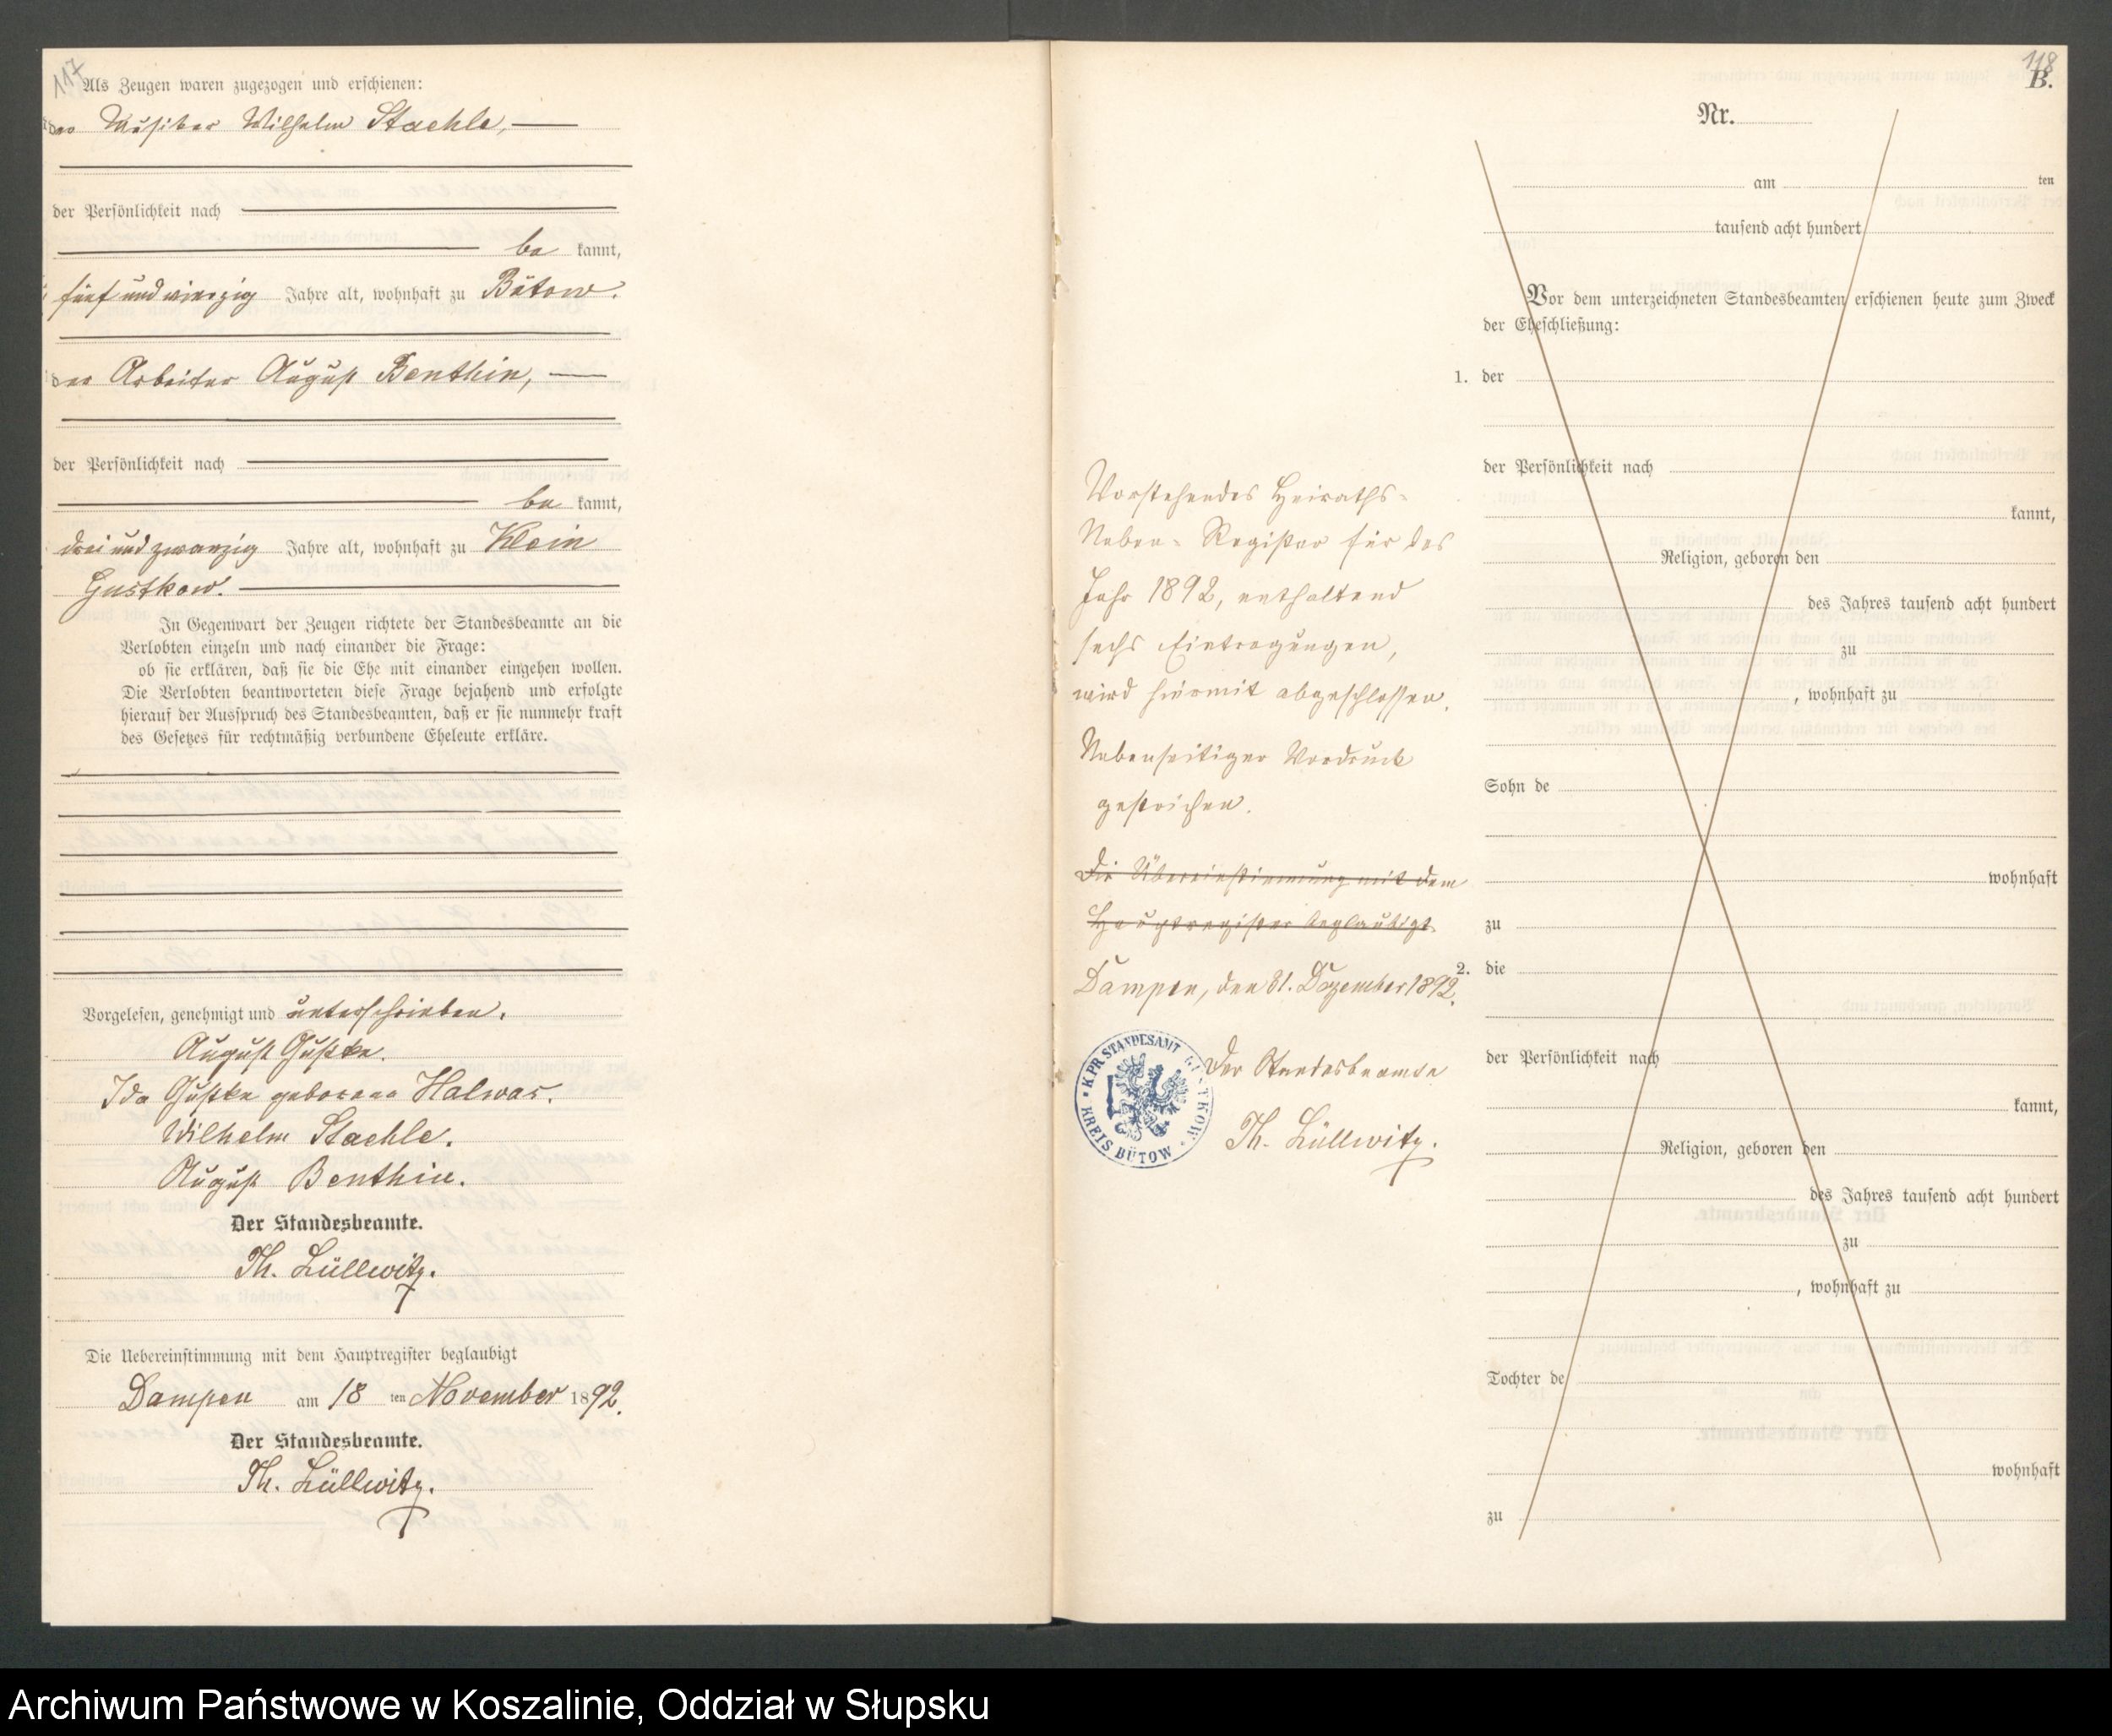 117
Als Zeugen waren zugezogen und erschienen:
der Musiker Wilhelm Staehle,
der Persönlichkeit nach
be kannt,
fünf und vierzig Jahre alt, wohnhaft zu Bütow.
der Arbeiter August Benthin,
der Persönlichkeit nach
be kannt,
drei und zwanzig Jahre alt, wohnhaft zu Klein
Gustkow.
In Gegenwart der Zeugen richtete der Standesbeamte an die
Verlobten einzeln und nach einander die Frage:
ob sie erklären, daß sie die Ehe mit einander eingehen wollen.
Die Verlobten beantworteten diese Frage bejahend und erfolgte
hierauf der Ausspruch des Standesbeamten, daß er sie nunmehr kraft
des Gesetzes für rechtmäßig verbundene Eheleute erkläre.
Vorgelesen, genehmigt und unterschrieben.
August Guske.
Ida Guske geborene Halwas.
Wilhelm Staehle.
August Benthin.
Der Standesbeamte.
Th. Lüllwitz.
Die Uebereinstimmung mit dem Hauptregister beglaubigt
Dampen am 18 ten November 1892.
Der Standesbeamte.
Th. Lüllwitz.
Vorstehendes Heiraths-
Neben-Register für das
Jahr 1892, enthaltend
sechs Eintragungen,
wird hiermit abgeschlossen.
Nebenseitiger Vordruck
gestrichen.
Die Übereinstimmung mit dem
Hauptregister beglaubigt
Dampen, den 31. Dezember 1892.
KPR STANDESAMT GUSTKOW
KREIS BÜTOW
Der Standesbeamte
Th. Lüllwitz.
118
B.
Nr.
am ten
tausend acht hundert
Vor dem unterzeichneten Standesbeamten erschienen heute zum Zweck
der Eheschließung:
1. der
der Persönlichkeit nach
kannt,
Religion, geboren den
des Jahres tausend acht hundert
zu
, wohnhaft zu
Sohn de
wohnhaft
zu
2. die
der Persönlichkeit nach
kannt,
Religion, geboren den
des Jahres tausend acht hundert
zu
, wohnhaft zu
Tochter de
wohnhaft
zu
Archiwum Państwowe w Koszalinie, Oddział w Słupsku